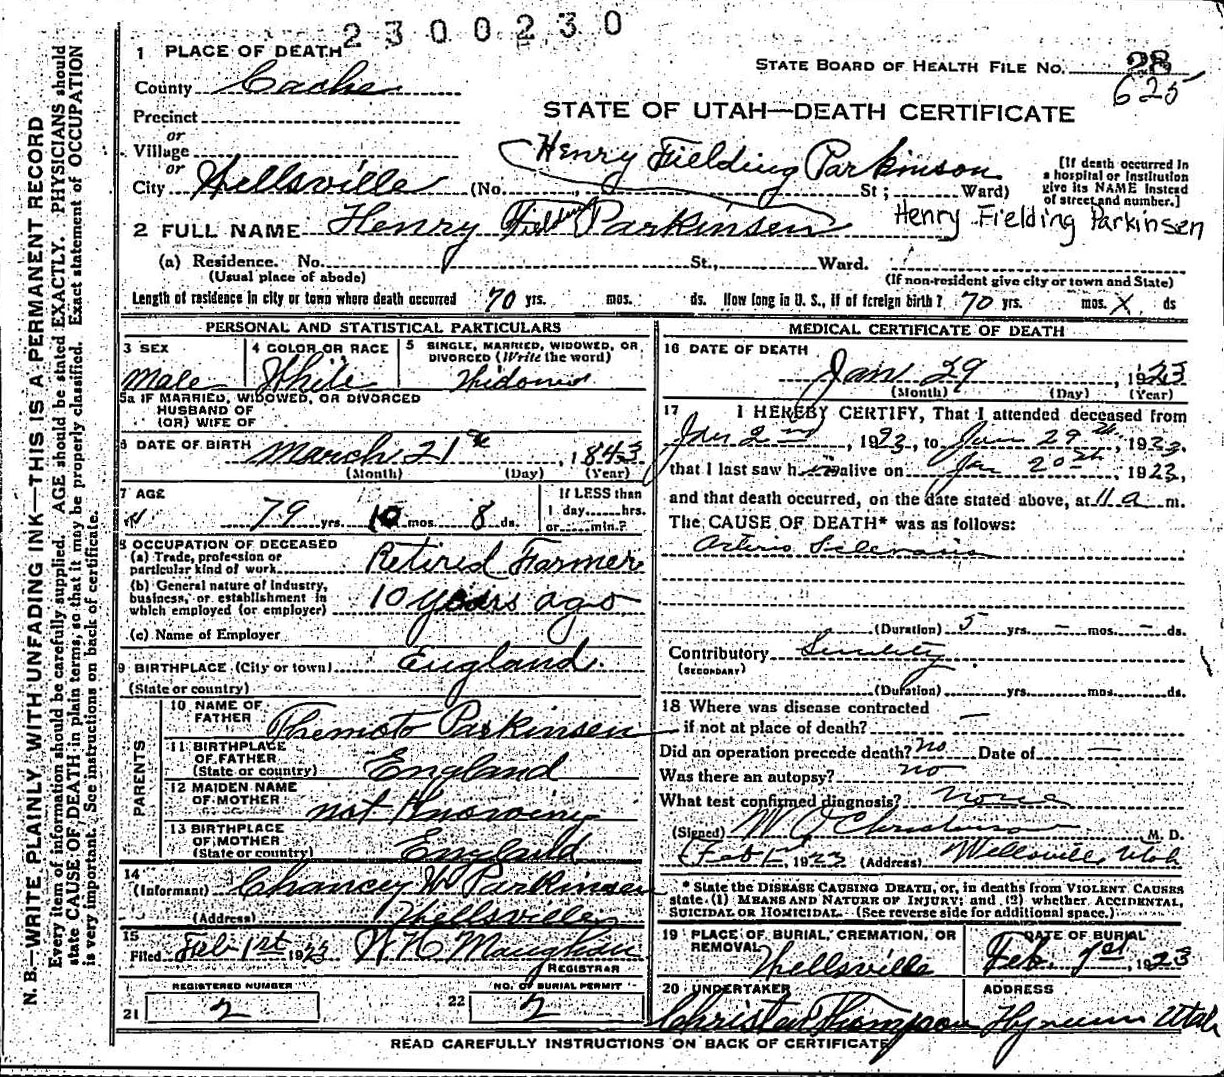 2300230
1 PLACE OF DEATH
STATE BOARD OF HEALTH FILE NO. 28
625
County Cache
STATE OF UTAH—DEATH CERTIFICATE
Precinct
or
Village
or
City Wellsville (No. , St; Ward)
Henry Fielding Parkinson
[If death occurred in a hospital or institution give its NAME instead of street and number.]
2 FULL NAME Henry Fielding Parkinsen
Henry Fielding Parkinsen
(a) Residence. No. St., Ward.
(Usual place of abode) (If non-resident give city or town and State)
Length of residence in city or town where death occurred 70 yrs. mos. ds. How long in U. S., if of foreign birth? 70 yrs. mos. X ds
PERSONAL AND STATISTICAL PARTICULARS
3 SEX
Male
4 COLOR OR RACE
White
5 SINGLE, MARRIED, WIDOWED, OR DIVORCED (Write the word)
5a IF MARRIED, WIDOWED, OR DIVORCED
HUSBAND OF
(OR) WIFE OF
6 DATE OF BIRTH March 21st, 1843
(Month) (Day) (Year)
7 AGE
79 yrs. 10 mos. 8 ds.
If LESS than
1 day....hrs.
or....min.?
8 OCCUPATION OF DECEASED
(a) Trade, profession or particular kind of work Retired Farmer
(b) General nature of industry, business, or establishment in which employed (or employer) 10 years ago
(c) Name of Employer
9 BIRTHPLACE (City or town) England
(State or country)
PARENTS
10 NAME OF FATHER Themoto Parkinsen
11 BIRTHPLACE OF FATHER (State or country) England
12 MAIDEN NAME OF MOTHER not Knowing
13 BIRTHPLACE OF MOTHER (State or country) England
14
(Informant) Chancey W Parkinsen
(Address) Wellsville
15
Filed Feb 1st 1923 W H Maughan
REGISTRAR
REGISTERED NUMBER
21 2
NO. OF BURIAL PERMIT
22 2
MEDICAL CERTIFICATE OF DEATH
16 DATE OF DEATH
Jan 29, 1923
(Month) (Day) (Year)
17 I HEREBY CERTIFY, That I attended deceased from
Jan 2nd, 1923, to Jan 29th, 1923,
that I last saw him alive on Jan 20th, 1923,
and that death occurred, on the date stated above, at 11 a m.
The CAUSE OF DEATH* was as follows:
Arterio Sclerosis
(Duration) 5 yrs. – mos. – ds.
Contributory Senility
(SECONDARY)
(Duration) yrs. mos. ds.
18 Where was disease contracted
if not at place of death? —
Did an operation precede death? no Date of —
Was there an autopsy? no
What test confirmed diagnosis? none
(Signed) W O Christensen M. D.
Feb 1, 1923 (Address) Wellsville, Utah
* State the DISEASE CAUSING DEATH, or, in deaths from VIOLENT CAUSES
state (1) MEANS AND NATURE OF INJURY; and (2) whether ACCIDENTAL,
SUICIDAL OR HOMICIDAL. (See reverse side for additional space.)
19 PLACE OF BURIAL, CREMATION, OR REMOVAL
Wellsville
DATE OF BURIAL
Feb. 1st, 1923
20 UNDERTAKER
Thompson
ADDRESS
Hyrum Utah
READ CAREFULLY INSTRUCTIONS ON BACK OF CERTIFICATE
N. B.—WRITE PLAINLY, WITH UNFADING INK—THIS IS A PERMANENT RECORD
Every item of information should be carefully supplied. AGE should be stated EXACTLY. PHYSICIANS should
state CAUSE OF DEATH in plain terms, so that it may be properly classified. Exact statement of OCCUPATION
is very important. See instructions on back of certificate.